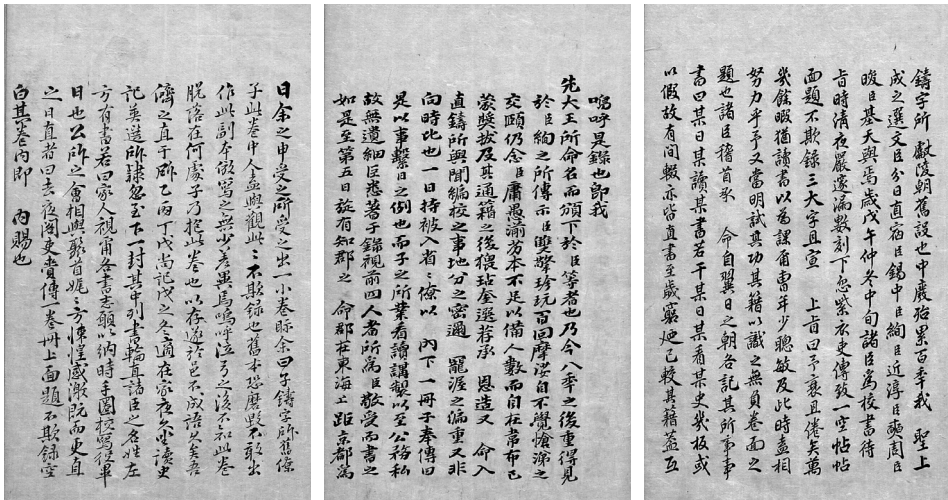 鑄字所 獻陵朝舊設也中廢殆累百年我 聖上
成之選文臣分日直宿臣錫中臣絢臣近淳臣周臣
畯臣基天與焉歲戊午仲冬中旬諸臣爲校書待
旨時清夜嚴邃漏數刻下忽紫衣吏傳致一空帖帖
面題不欺錄三大字且宣 上旨曰予衰且倦矣萬
幾餘暇猶讀書以爲課甭曹年少聰敏及此時盍相
努力乎予又當明試其功其籍以識之無負卷面之
題也諸臣稽首承 命自翌日之朝各記其所事事
書曰某日某讀某書若干某日某看某史幾板或
以假故有間輟亦皆直書至歲窮廼已較其籍盖互
嗚呼是錄也卽我
先大王所命名而頒下於臣等者也乃今八年之後重得見
於臣絢之所傳示臣雙擎珍玩百回摩挲自不覺愴涕之
交頤仍念臣庸愚湔劣本不足以備人數而自在韋布已
蒙奬拔及其通籍之後猥玷奎選荐承 恩造又 命入
直鑄所與聞編校之事地分之密邇 寵渥之偏重又非
向時比也一日持被入省省僚以 內下一冊子奉傳曰
是以事繫日之例也而子之所業看讀講製以至公務私
故無遺細臣悉著于錄視前四人者所爲臣敬受而書之
如是至第五日旋有知郡之 命郡在東海上距京都萬
日余之申受之所受之出一小卷眎余曰子鑄字所舊僚
子此卷中人盍與觀此此不欺錄也舊本恐磨毀不敢出
作此副本欲寫之無少差異焉嗚呼泣弓之後不知此卷
脫落在何處子乃抱此卷也以存遂於邑不成語久矣吾
儕之直于所乙丙丁戊尚記戊之冬適在家夜久坐讀史
記英造所隷忽至下一封其中列書輪直諸臣之名姓左
方有書若曰家人視甭各書志願以納時手圈校寫役畢
日也公所之會相與聚首娓娓方悚惶感激旣而更自
之日直者曰去夜閣吏賫傳一卷冊上面題不欺錄空
白其卷內卽 內賜也